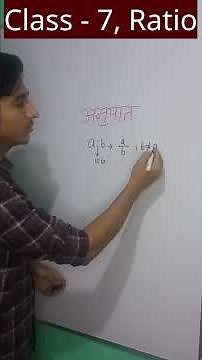 Class - 7, Ratio
अनुपात
a:b → a/b , b≠0